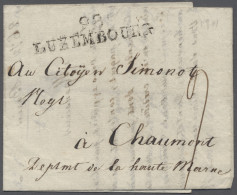 98
LUXEMBOURG
Au Citoyen Simonot
Negt
à Chaumont
Depmt de la haute Marne